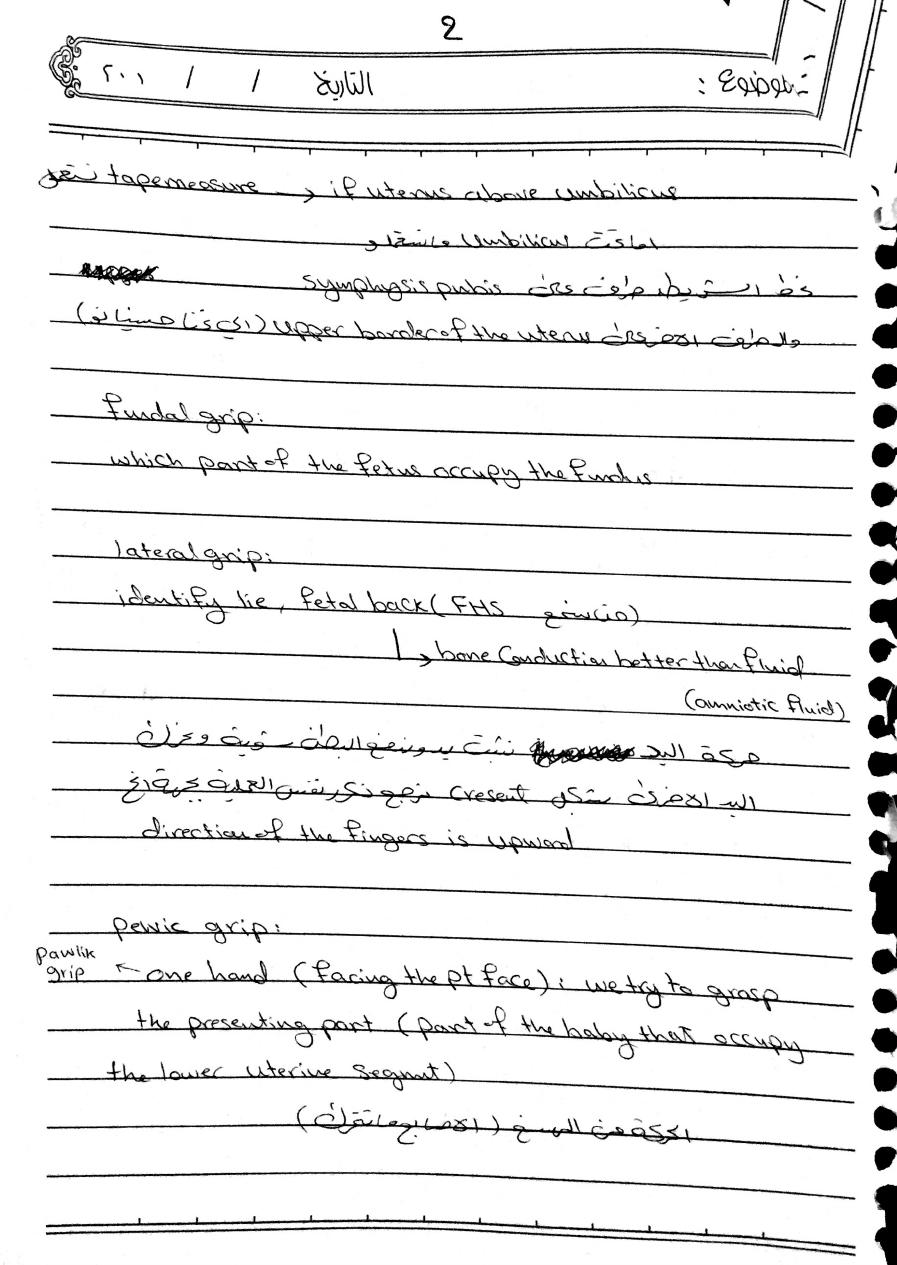 2
الموضوع : التاريخ / / ٢٠١
tapemeasure → if uterus above umbilicus
اذا تحت umbilicus ما نستخدمه
نحط الشريط طرف على symphysis pubis
والطرف الاخر على upper border of the uterus (الي كنا حسيناه)
fundal grip:
which part of the fetus occupy the fundus
lateral grip:
identify lie, fetal back (FHS وين نسمع)
↳ bone Conduction better than fluid
(amniotic fluid)
حركة اليد نثبت يد وندفع البطن شوية ونحرك
اليد الاخرى بشكل cresent نرجع نكرر نفس العملية بجهة
direction of the fingers is upward
pelvic grip:
pawlik grip ← one hand (facing the pt face): we try to grasp
the presenting part (part of the baby that occupy
the lower uterine segmnt)
الحركة من الرسغ (الاصابع ما تتحرك)